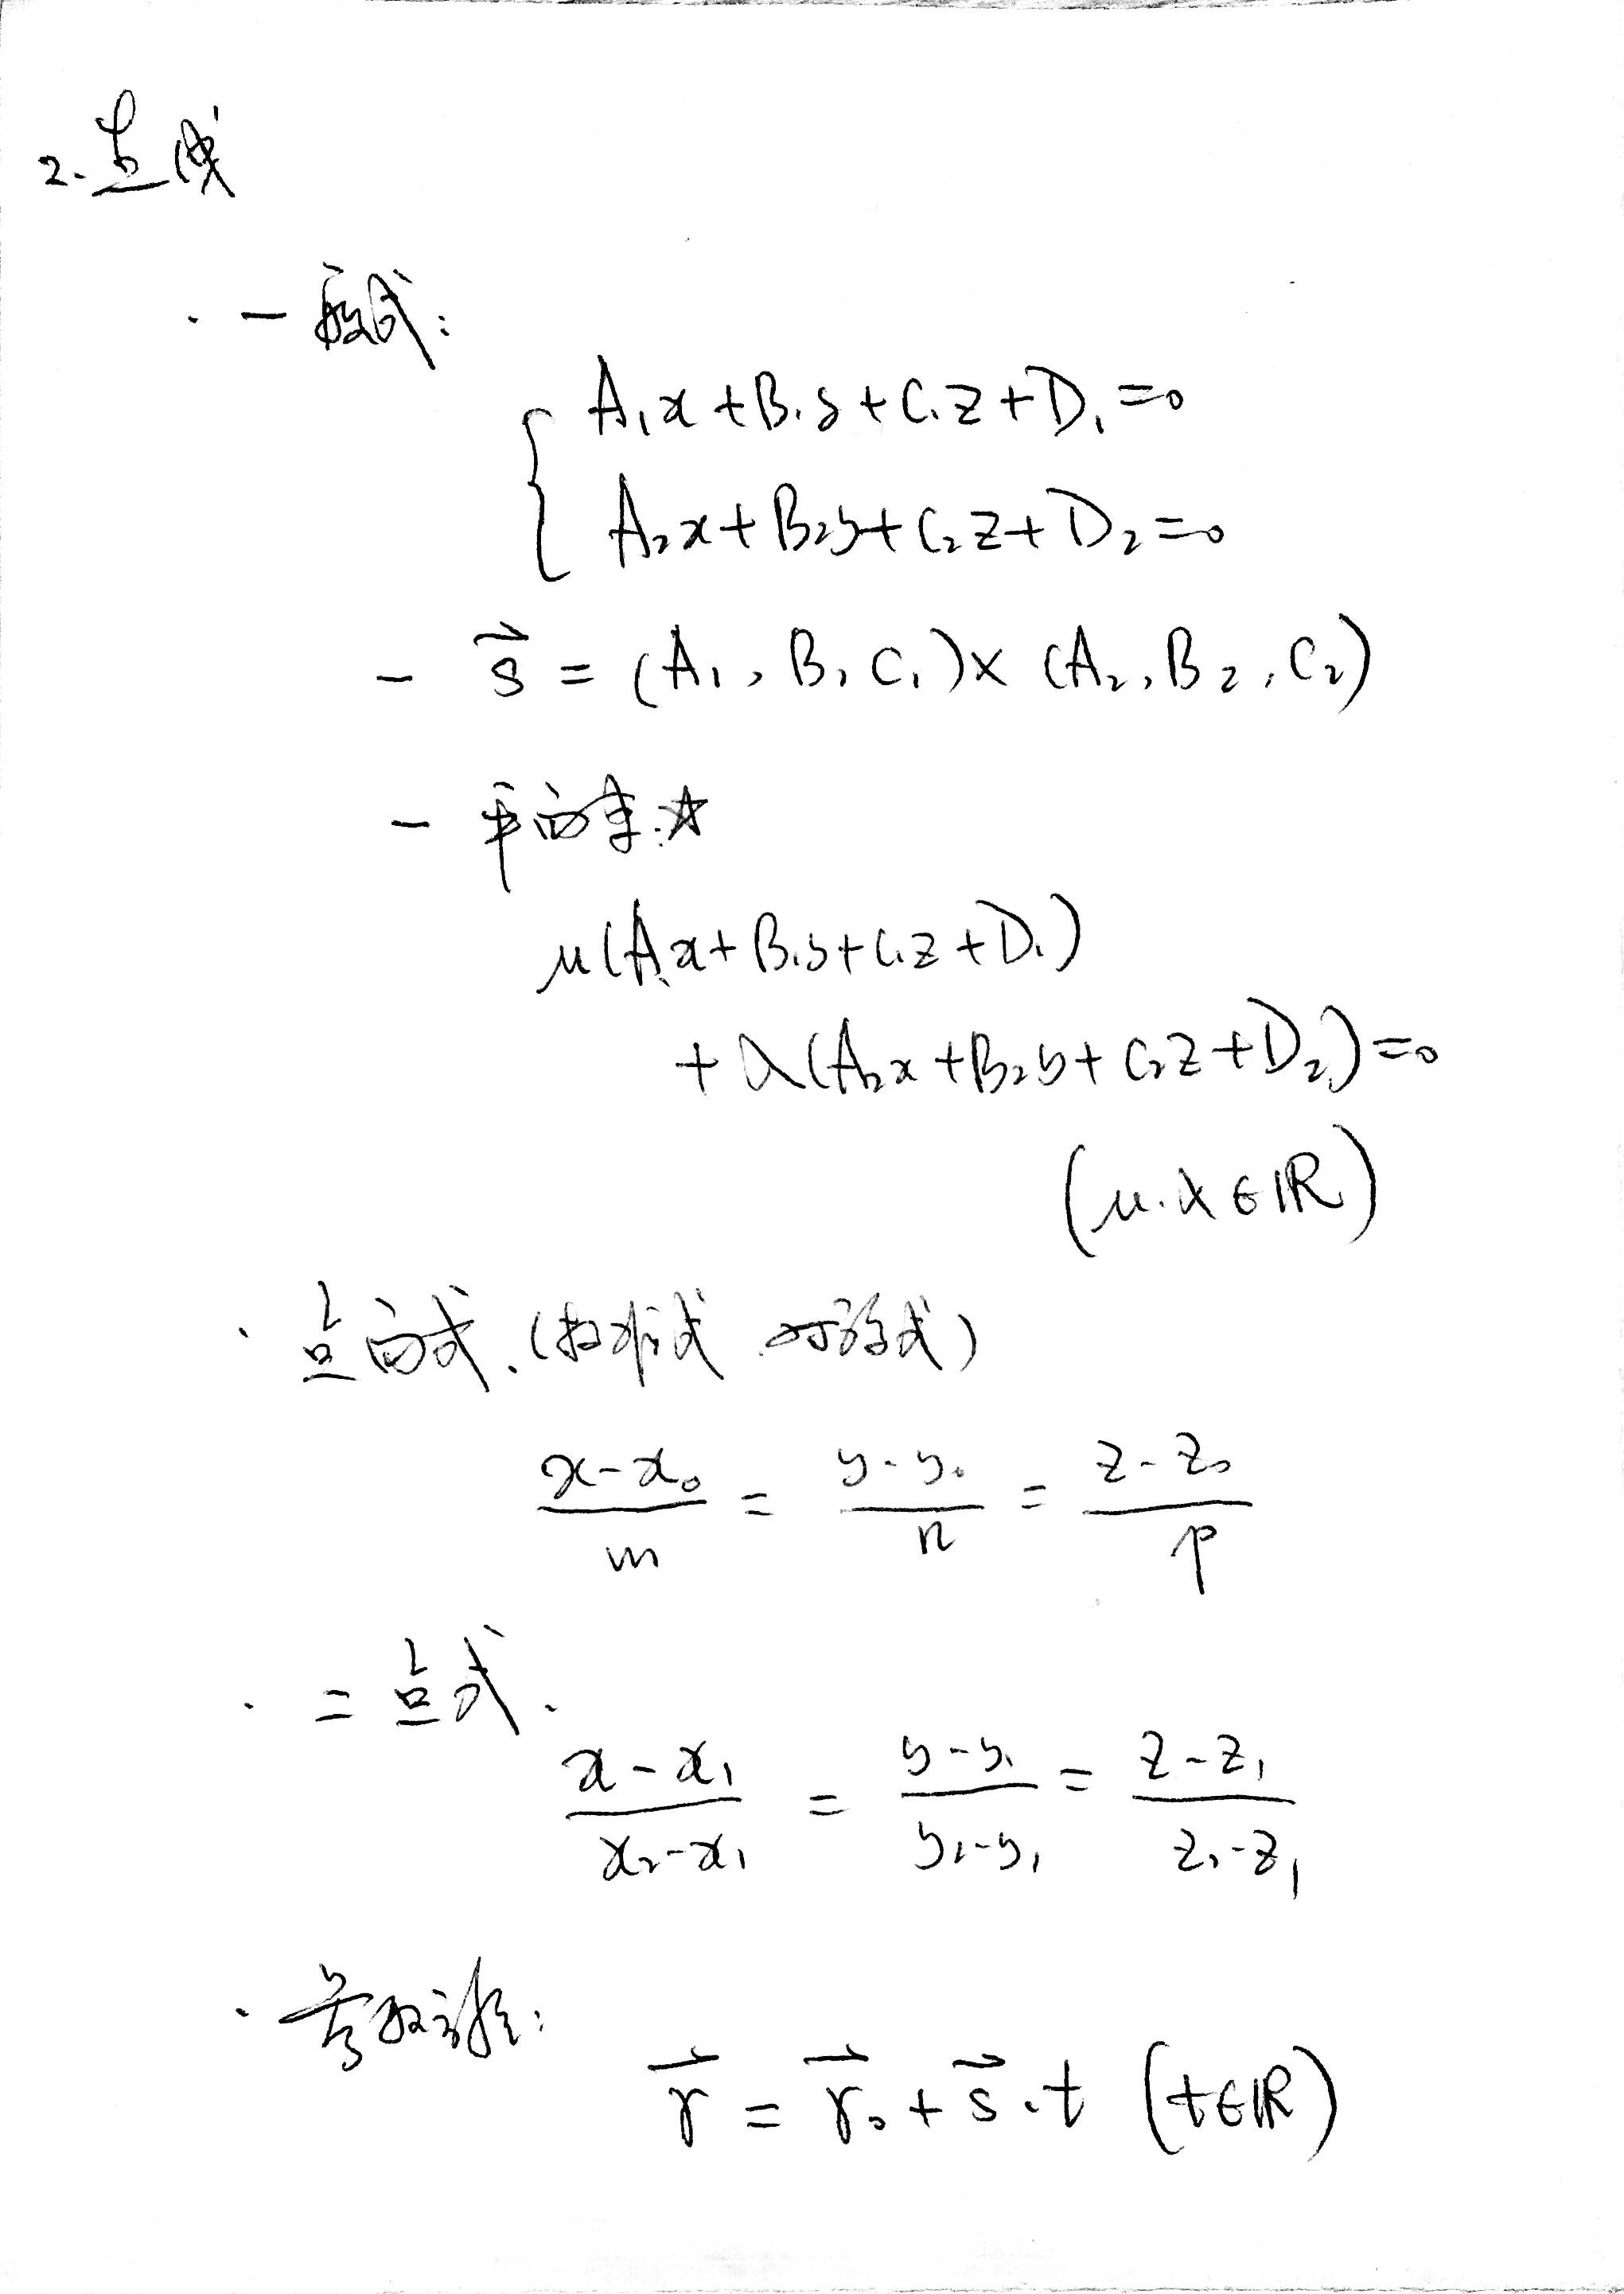 2. 直线
· 一般式:
A₁x+B₁y+C₁z+D₁=0
A₂x+B₂y+C₂z+D₂=0
- s⃗ = (A₁, B₁ C₁)×(A₂, B₂, C₂)
- 平面束:☆
μ(A₁x+B₁y+C₁z+D₁)
+λ(A₂x+B₂y+C₂z+D₂)=0
(μ.λ∈ℝ)
· 点向式.(标准式 对称式)
(x-x₀)/m = (y-y₀)/n = (z-z₀)/p
· 二点式.
(x-x₁)/(x₂-x₁) = (y-y₁)/(y₂-y₁) = (z-z₁)/(z₂-z₁)
· 参数方程:
r⃗ = r⃗₀+s⃗·t (t∈ℝ)